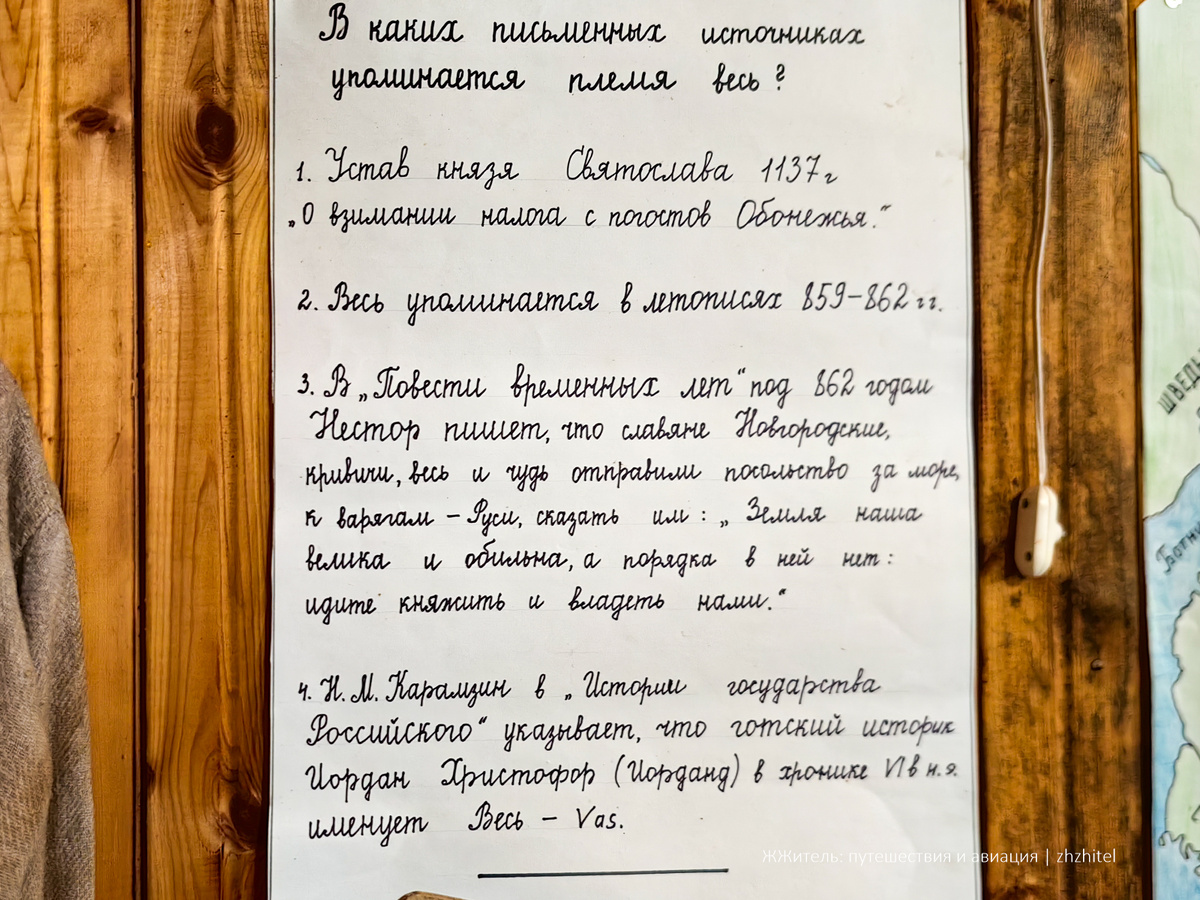 В каких письменных источниках
упоминается племя весь?
1. Устав князя Святослава 1137г
„О взимании налога с погостов Обонежья.“
2. Весь упоминается в летописях 859-862 гг.
3. В „Повести временных лет“ под 862 годом
Нестор пишет, что славяне Новгородские,
кривичи, весь и чудь отправили посольство за море,
к варягам – Руси, сказать им: „Земля наша
велика и обильна, а порядка в ней нет:
идите княжить и владеть нами.“
4. Н.М. Карамзин в „Истории государства
Российского“ указывает, что готский историк
Иордан Христофор (Иорданд) в хронике VI в н.э.
именует Весь – Vas.
ЖЖитель: путешествия и авиация | zhzhitel